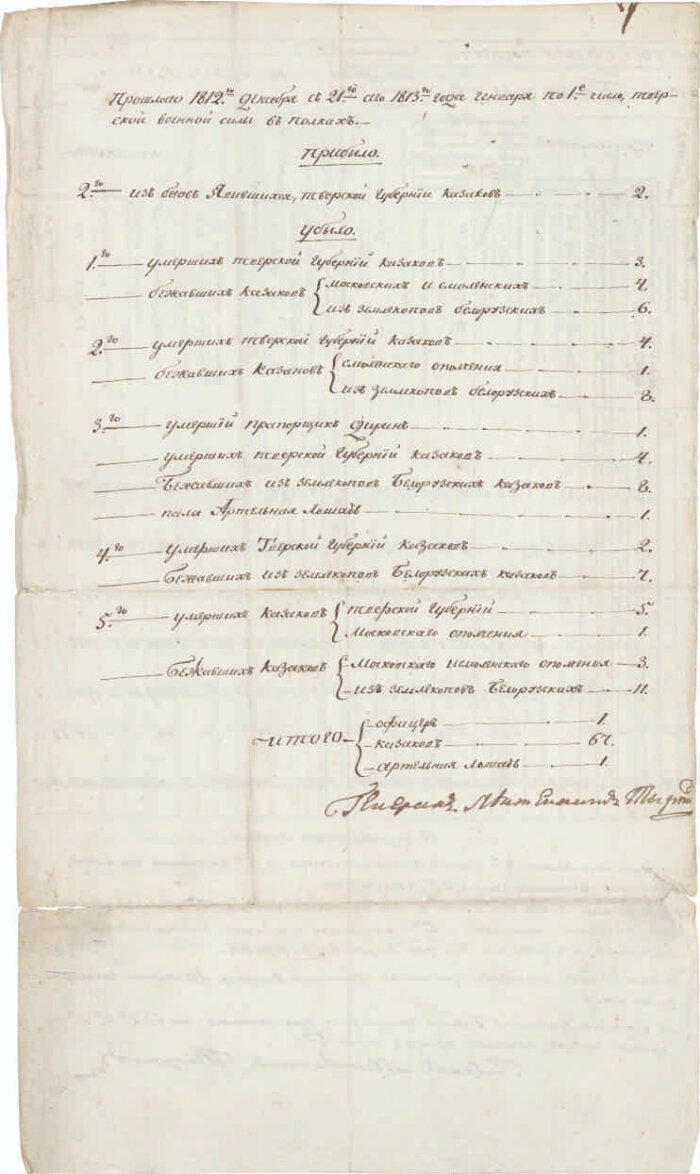 Прошлаго 1812.го декабря съ 21.го сего 1813.го года генваря по 1.е число, твер-
ской военной силы въ полкахъ.
прибыло.
2.го изъ вновь явившихся, тверской губернїи казаковъ 2.
убыло.
1.го умершихъ тверской губернїи казаковъ 3.
бежавшихъ казаковъ { московскихъ и смоленскихъ 4.
изъ землекоповъ белорузскихъ 6.
2.го умершихъ тверской губернїи казаковъ 4.
бежавшихъ казаковъ { смоленскаго ополчения 1.
изъ землекоповъ белорузскихъ 8.
3.го умершїй прапорщикъ Ширинъ 1.
умершихъ тверской губернїи казаковъ 4.
Бежавшихъ изъ землекоповъ Белорузскихъ казаковъ 8.
пала Артельная лошадь 1.
4.го умершихъ Тверской губернїи казаковъ 2.
Бежавшихъ изъ землекоповъ Белорузскихъ казаковъ 7.
5.го умершихъ казаковъ { тверской губернїи 5.
Московскаго ополчения 1.
Бежавшихъ казаковъ { Московскаго исмоленскаго ополчения 3.
изъ землекоповъ Белорузскихъ 11.
итого { офицеръ 1.
казаковъ 67.
артельная лошадь 1.
Генералъ Лейтенантъ